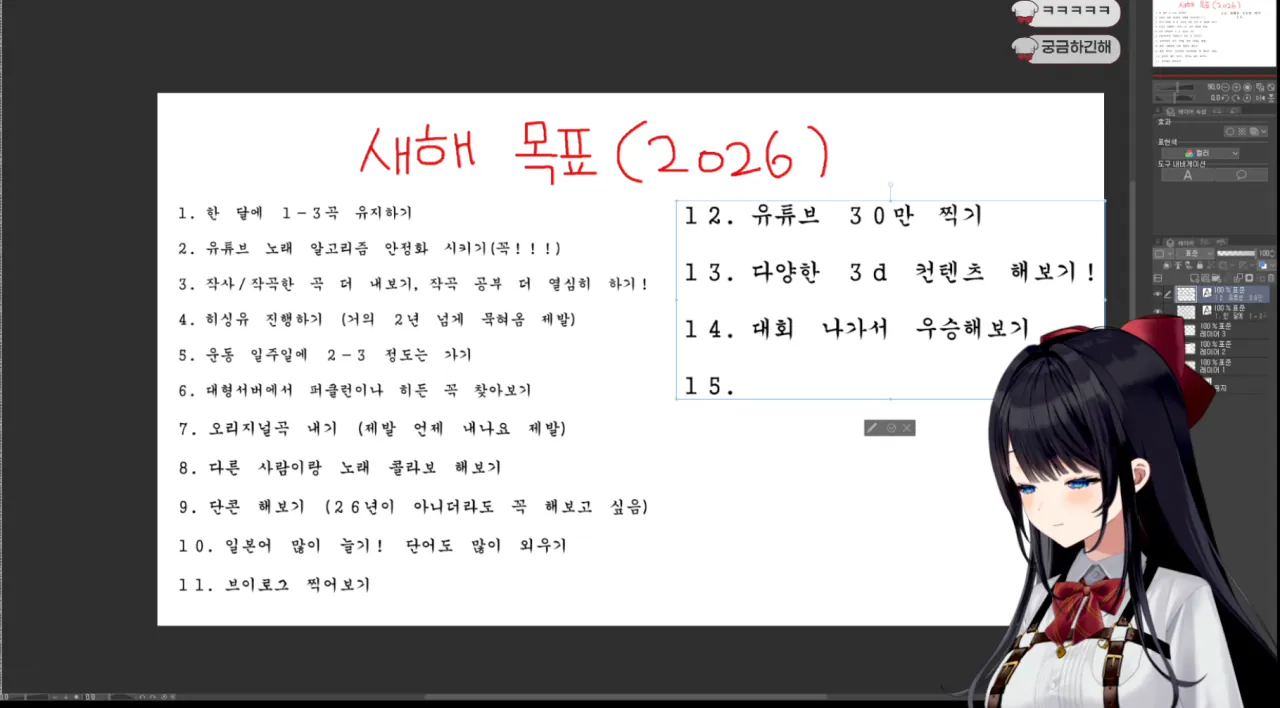 ㅋㅋㅋㅋㅋ
궁금하긴해
새해 목표(2026)
1. 한 달에 1-3곡 유지하기
2. 유튜브 노래 알고리즘 안정화 시키기(꼭!!!)
3. 작사/작곡한 곡 더 내보기, 작곡 공부 더 열심히 하기!
4. 히싱유 진행하기 (거의 2년 넘게 묵혀옴 제발)
5. 운동 일주일에 2-3 정도는 가기
6. 대형서버에서 퍼클런이나 히든 꼭 찾아보기
7. 오리지널곡 내기 (제발 언제 내나요 제발)
8. 다른 사람이랑 노래 콜라보 해보기
9. 단콘 해보기 (26년이 아니더라도 꼭 해보고 싶음)
10. 일본어 많이 늘기! 단어도 많이 외우기
11. 브이로그 찍어보기
12. 유튜브 30만 찍기
13. 다양한 3d 컨텐츠 해보기!
14. 대회 나가서 우승해보기
15.
효과
표현색
컬러
도구 내비게이션
A
레이어
표준
100
100 % 표준
100 % 표준
100 % 표준
레이어 3
100 % 표준
레이어 2
100 % 표준
레이어 1